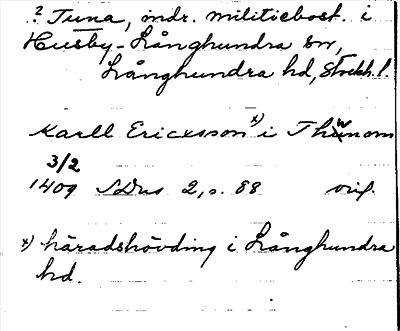 ? Tuna, indr. militiebost. i
Husby-Långhundra sn,
Långhundra hd, Stockh. l.
Karll Ericksson x) i Thwnom
3/2
1409 SDns 2, s. 88 orig.
x) häradshövding i Långhundra
hd.